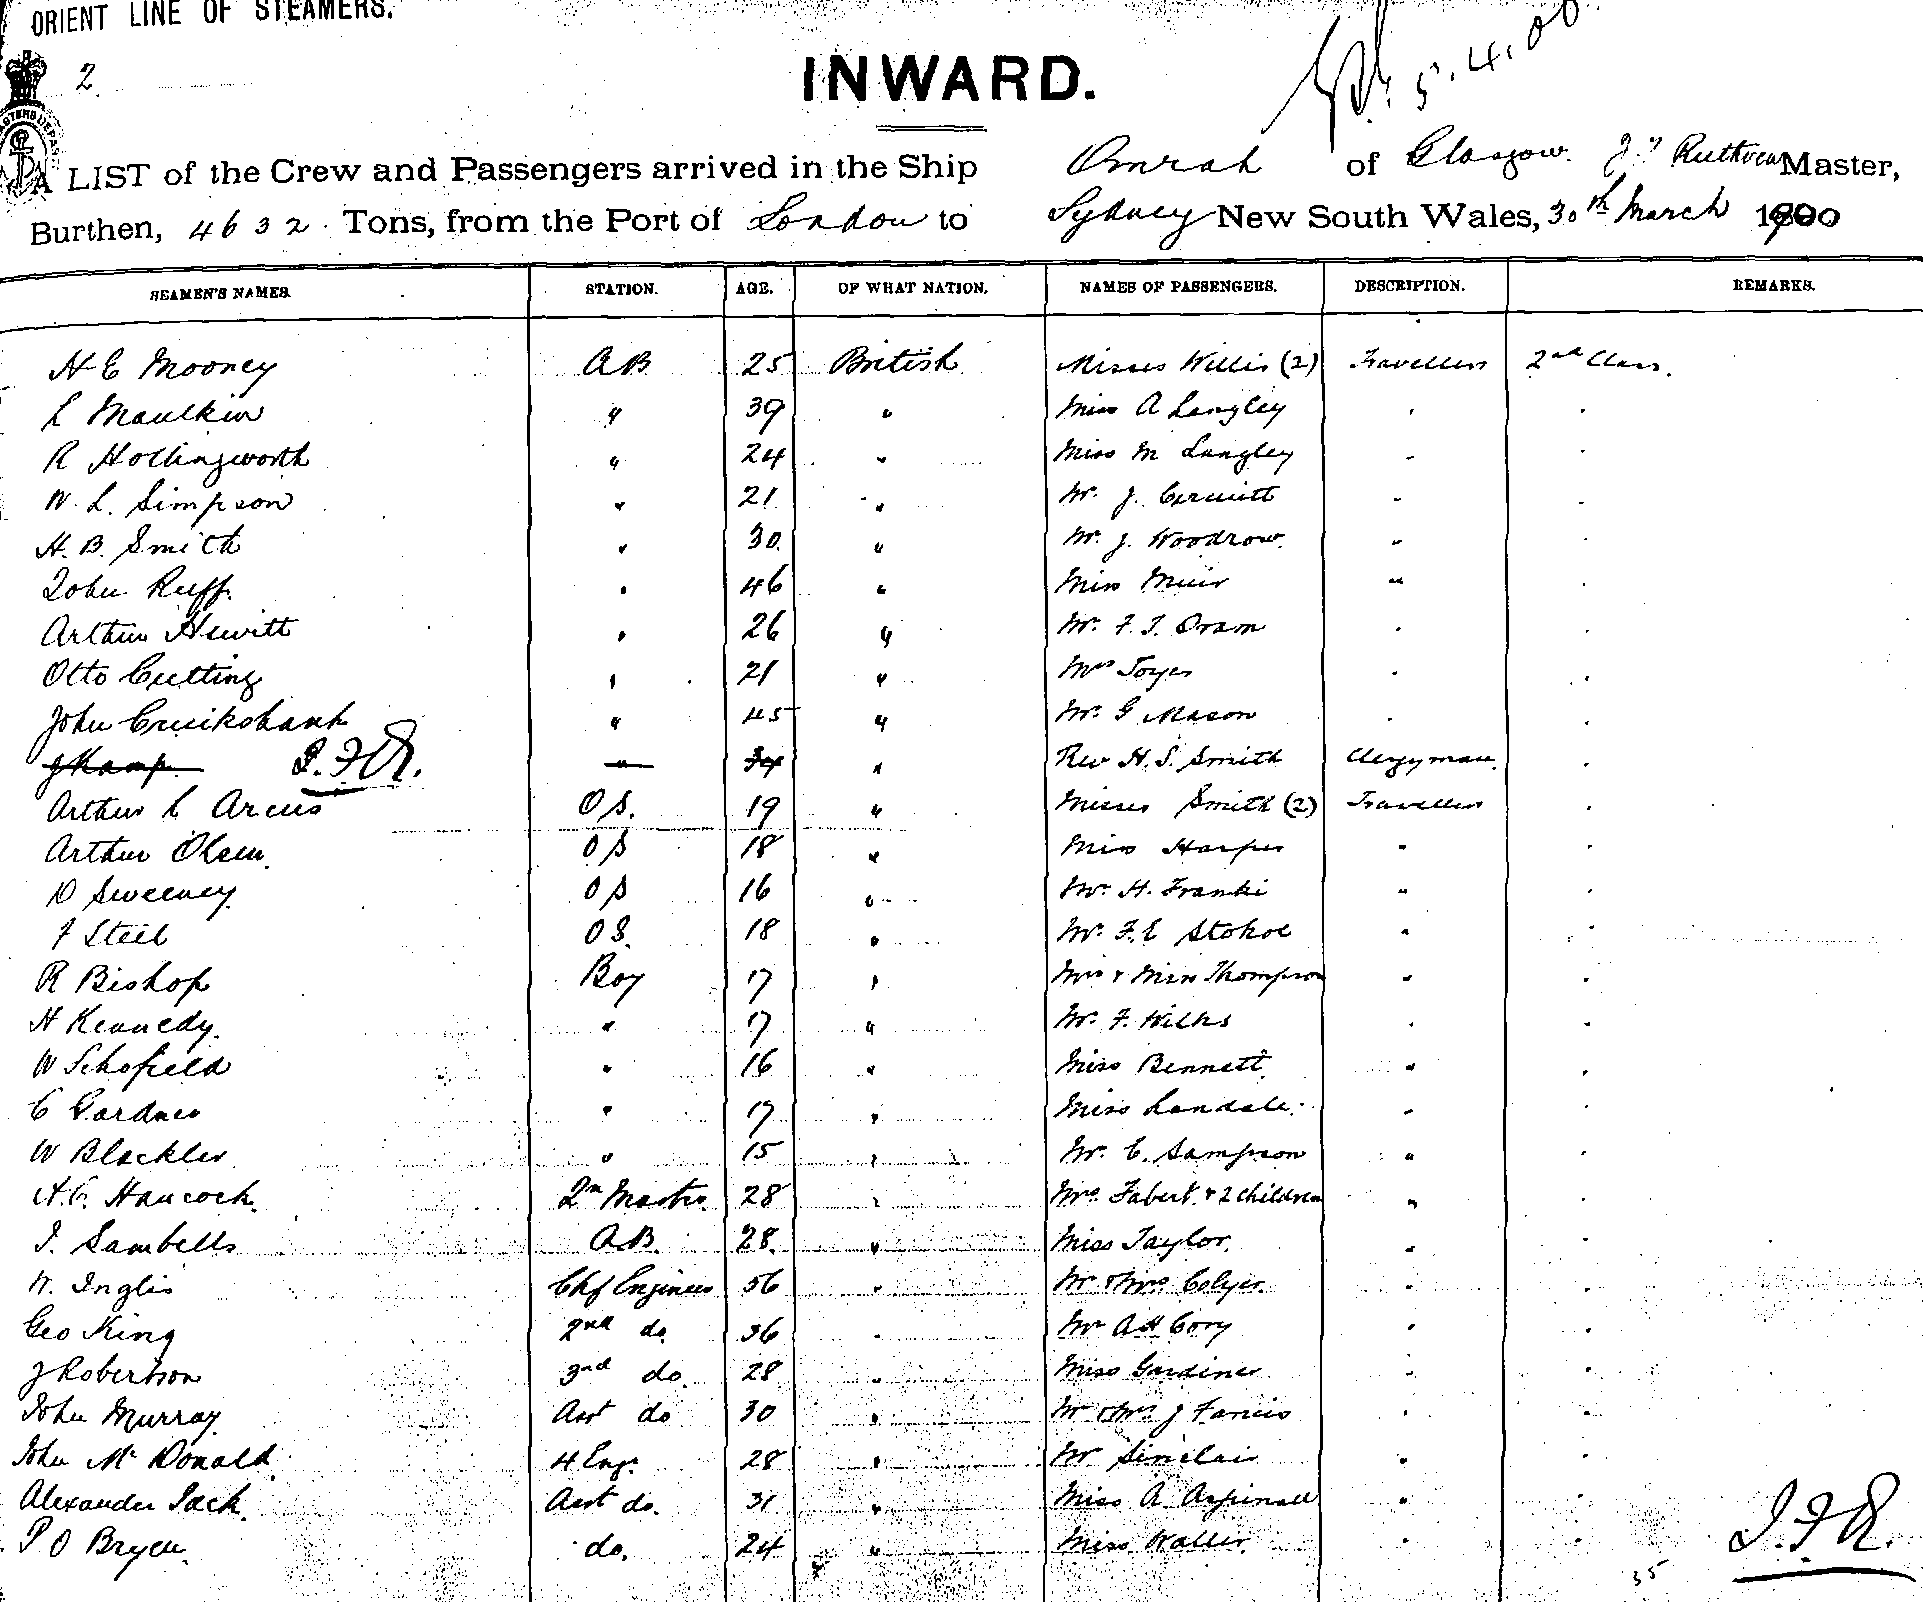 ORIENT LINE OF STEAMERS.
2
INWARD.
5.4.00
A LIST of the Crew and Passengers arrived in the Ship Omrah of Glasgow. Ruthven Master,
Burthen, 4632 Tons, from the Port of London to Sydney New South Wales, 30th March 1900
SEAMEN'S NAMES. STATION. AGE. OF WHAT NATION. NAMES OF PASSENGERS. DESCRIPTION. REMARKS.
H E Mooney AB 25 British Misses Willis (2) Travellers 2nd Class.
L Maulkin " 39 " Miss A Langley " "
R Hollingworth " 24 " Miss M Langley " "
W. L. Simpson " 21 " Mr. J. " "
H. B. Smith " 30 " Mr. J. Woodrow. " "
John Ruff. " 46 " Miss Muir " "
Arthur Hewitt " 26 " Mr. F. J. Oram " "
Otto Cutting " 21 " Mrs Joyes " "
John Cruikshank " 45 " Mr. G Mason " "
J Kamp J.F.R. " 34 " Rev H. S. Smith Clergyman. "
Arthur L Arcus O S. 19 " Misses Smith (2) Travellers "
Arthur Olsen. O S 18 " Miss Harper " "
D Sweeney. O S 16 " Mr. H. Franki " "
F Steel O S. 18 " Mr. F. E Stokoe " "
R Bishop Boy 17 " Mrs & Miss Thompson " "
H Kennedy. " 17 " Mr. F. Wilks " "
W Schofield " 16 " Miss Bennett. " "
C Gardner " 17 " Miss Landale. " "
W Blackler " 15 " Mr. C. Sampson " "
H. C. Hancock. 28 " Mrs. Fabert. & 2 children " "
J. Sambells AB. 28. " Miss Taylor. " "
W. Inglis Chf Engineer 56 " Mr & Mrs Colyer. " "
Geo King 2nd do 36 " Mr A H Cory " "
J Robertson 3rd do. 28 " Miss Gardiner " "
John Murray. Asst do 30 " Mr & Mrs J " "
John McDonald. 4 Eng. 28 " Mr Sinclair " "
Alexander Jack. Asst do. 31 " Miss A. Aspinall " "
P O Bryen. do. 24 " Miss Waller. " "
J.F.R.
35